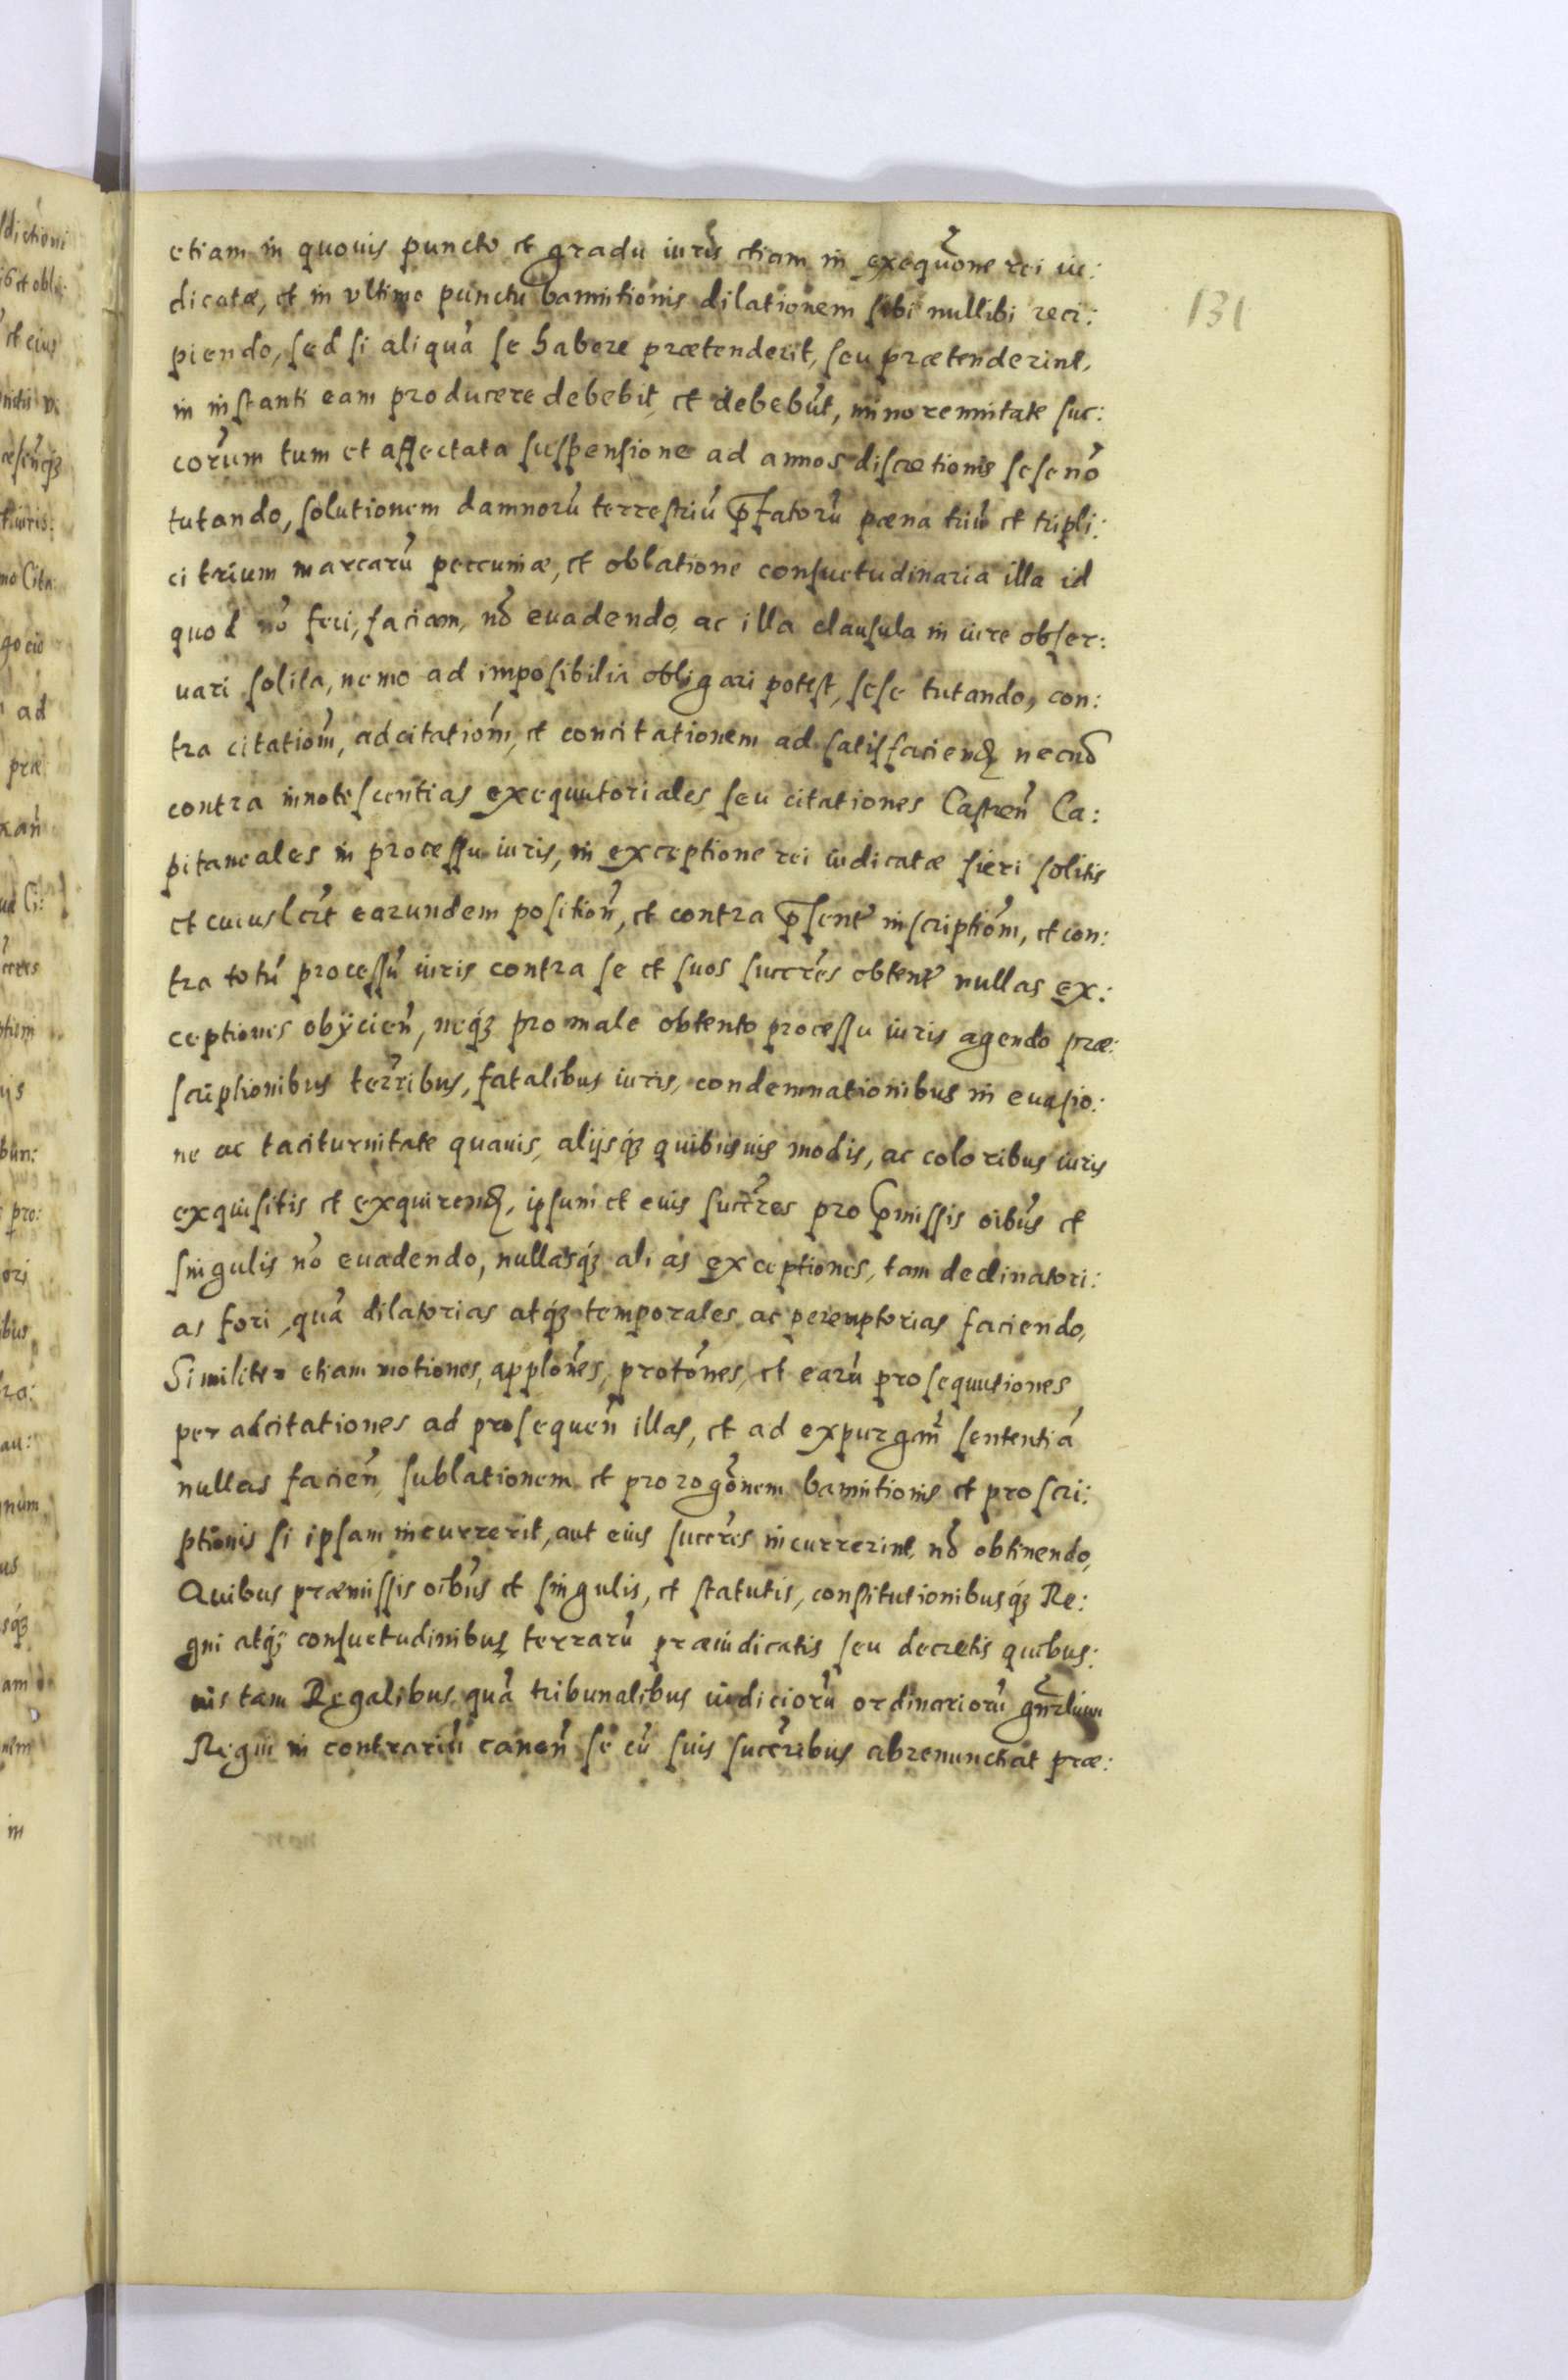 131
etiam in quouis puncto et gradu iuris etiam in exequōne rei iu:
dicatæ, et in vltimo punctu bannitionis dilationem sibi nullibi reci:
piendo, sed si aliquā se habere prætenderit, seu prætenderint,
in instanti eam producere debebit, et debebūt, minorennitate suc:
corūm tum et affectata suspensione ad annos discretionis sese nō
tutando, solutionem damnorū terrestriū p̄fatorū pœna triū et tripli:
ci trium marcarū peccuniæ, et oblatione consuetudinaria illa id
quod nō feci, faciam, nō euadendo, ac illa clausula in iure obser:
uari solita, nemo ad imposibilia obligari potest, sese tutando, con:
tra citatiōm, adcitatiōm, et concitationem ad satisfaciend necnō
contra innotescentias exequutoriales seu citationes Castreñ Ca:
pitaneales in processu iuris, in exceptione rei iudicatæ fieri solitis
et cuiuslēt earundem positioñ, et contra p̄sentē inscriptiōm, et con:
tra totū processū iuris contra se et suos succēs obtent nullas ex:
ceptiones obÿcieñ, neq́ꝫ pro male obtento processu iuris agendo præ:
scriptionibus terribus, fatalibus iuris, condemnationibus in euasio:
ne ac taciturnitate quauis, alijsq́ꝫ quibusuis modis, ac coloribus iuris
exquisitis et exquirend, ipsum et eius succres pro p̄missis oibūs et
singulis nō euadendo, nullasq́ꝫ alias exceptiones, tam declinatori:
as fori, quā dilatorias atq́ꝫ temporales ac peremptorias faciendo,
Similiter etiam motiones, applōnes, protōnes, et earū prosequutiones
per adcitationes ad prosequeñ illas, et ad expurgañ sententiā
nullas facieñ, sublationem et prorogōnem bannitionis et proscri:
ptionis si ipsam incurrerit, aut eius succres incurrerint nō obtinendo,
Quibus præmissis oibūs et singulis, et statutis, constitutionibusq́ꝫ Re:
gni atq́ꝫ consuetudinibus terrarū præiudicatis seu decretis quibus:
uis tam Regalibus quā tribunalibus iudiciorū ordinariorū gn̄rlium
Regni in contrariū canen̄ se cū suis succribus abrenunctiat præ: